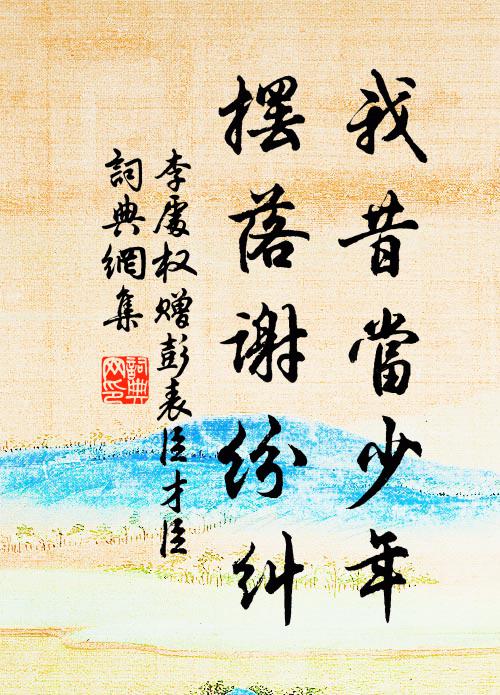 我昔當少年
擺落謝紛糾
李處权贈彭表臣才臣
詞典網集
詞典網印